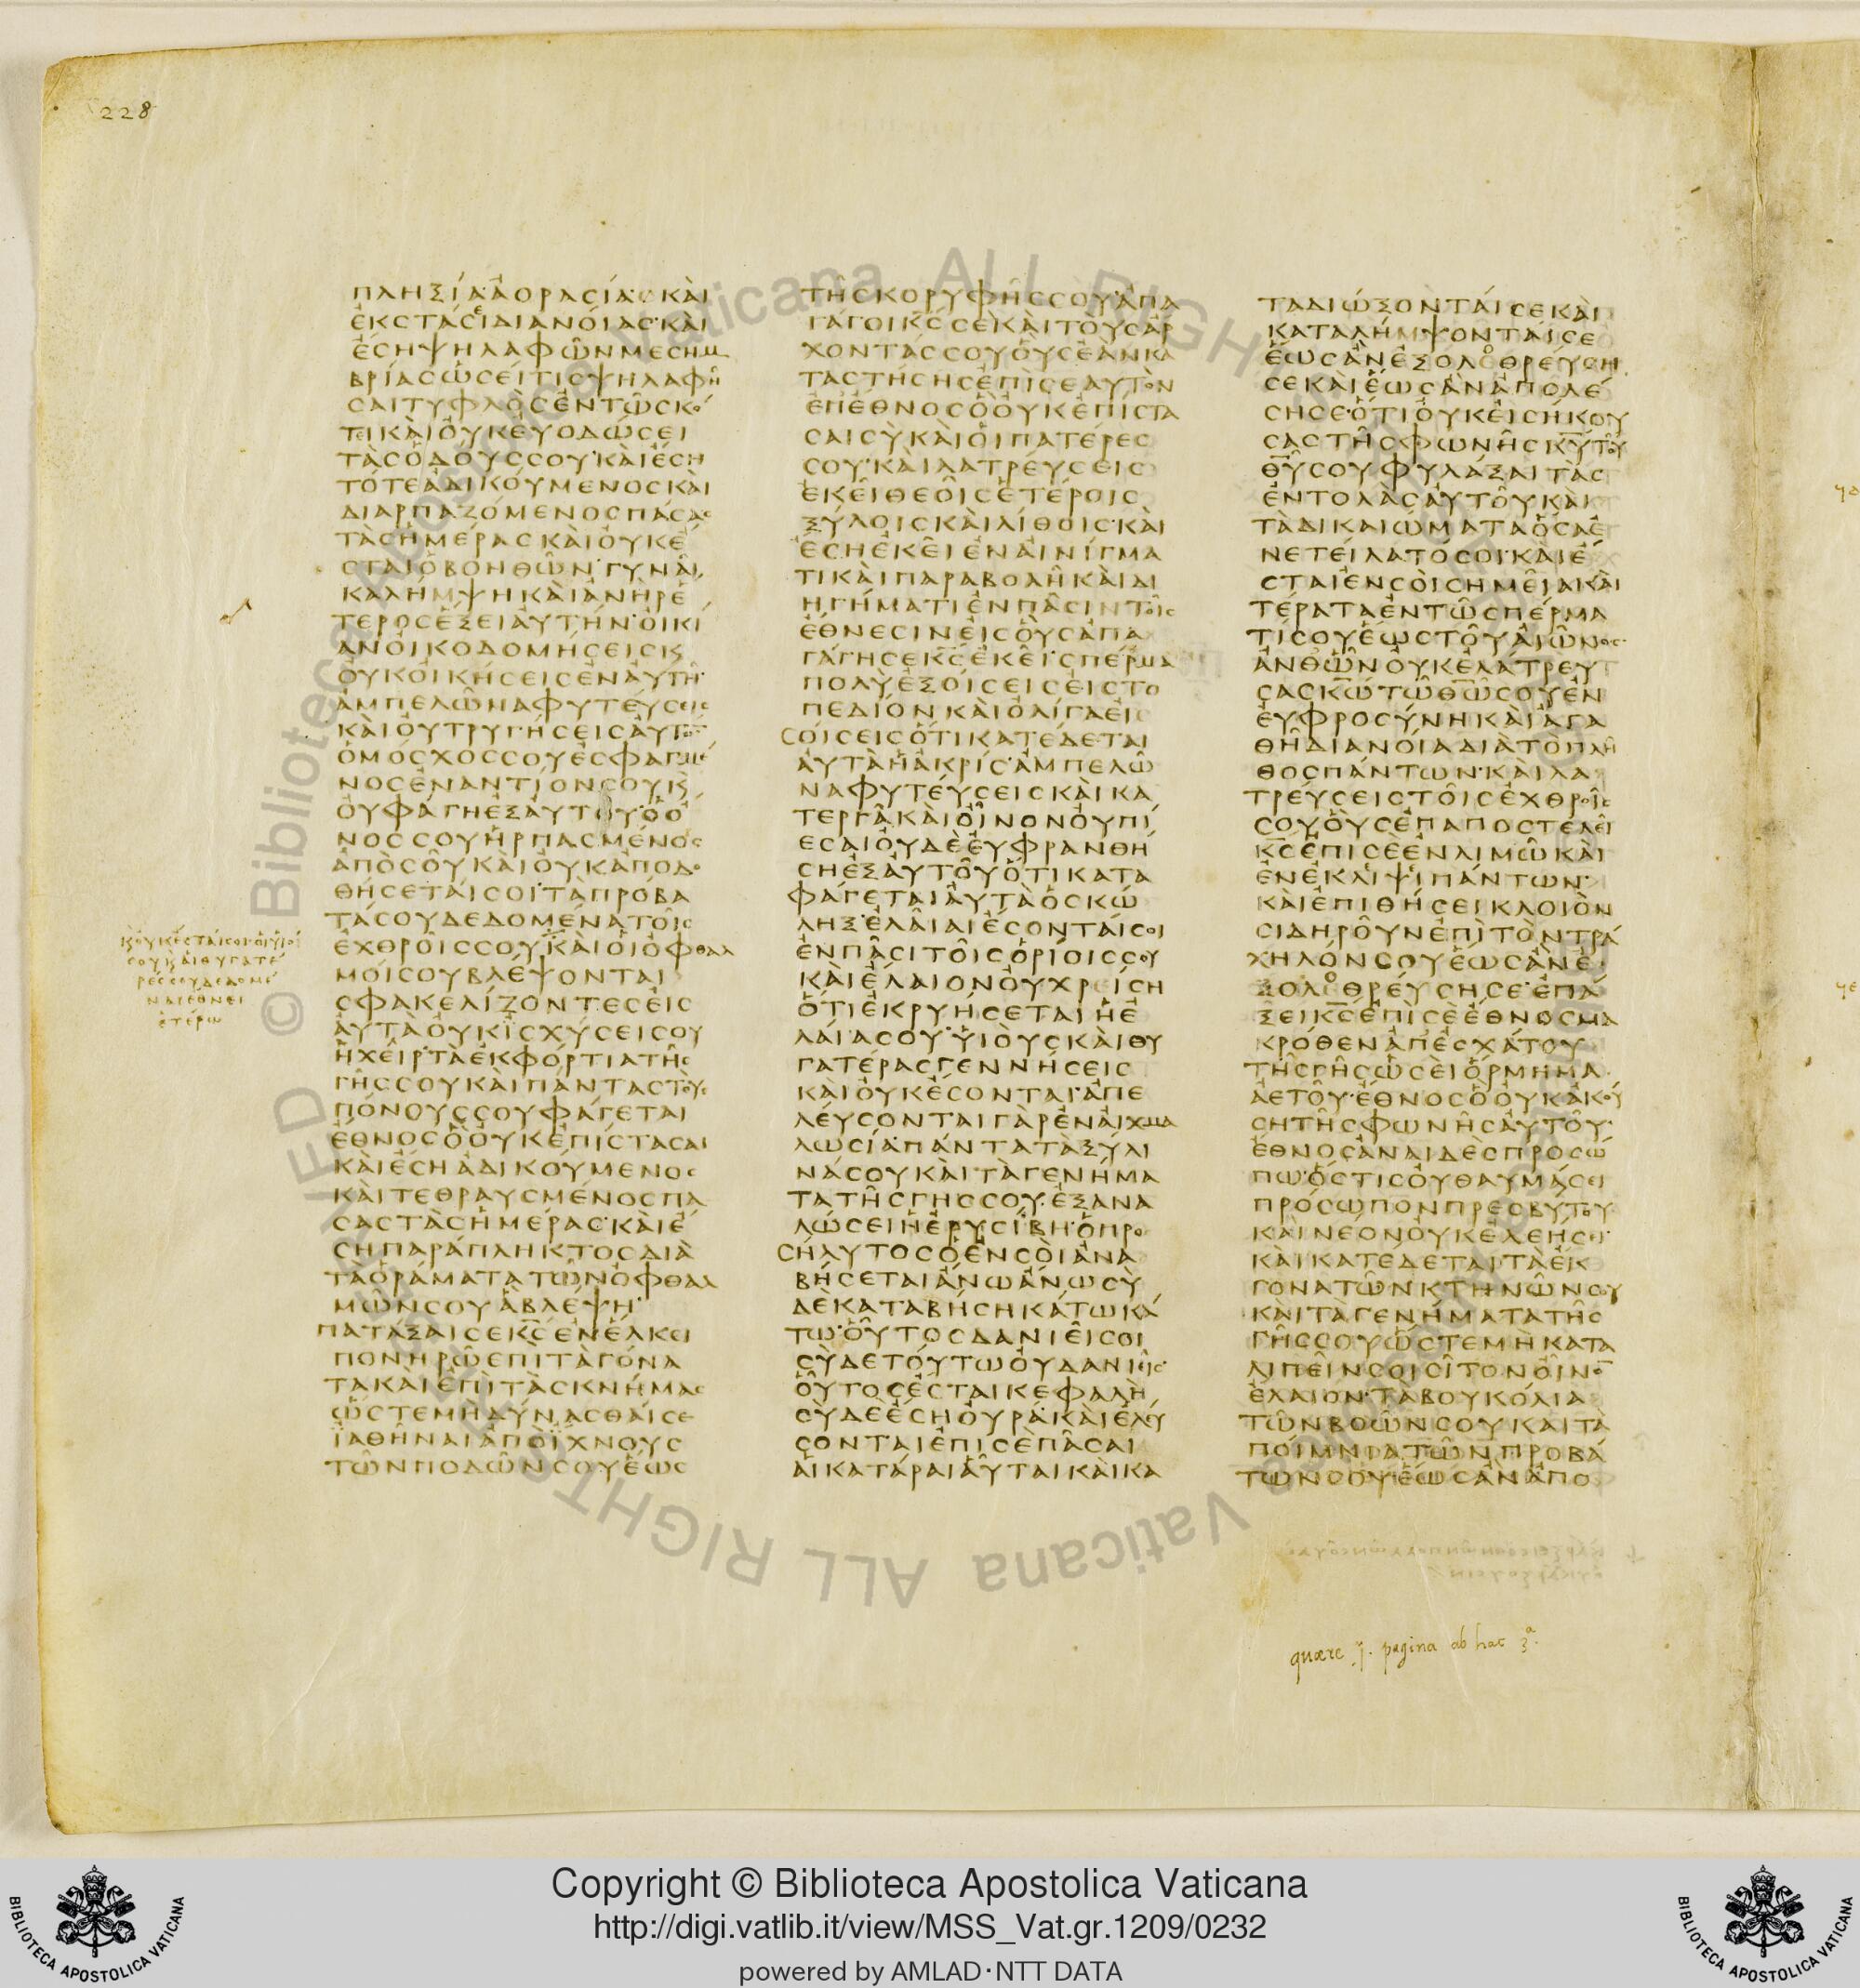 228
ΠΛΗΞΙΑ ΑΟΡΑΣΙΑΣ ΚΑΙ
ΕΚΣΤΑΣΕΙ ΔΙΑΝΟΙΑΣ ΚΑΙ
ΕΣΗ ΨΗΛΑΦΩΝ ΜΕΣΗΜ
ΒΡΙΑΣ ΩΣΕΙ ΤΙΣ ΨΗΛΑΦΗ
ΣΑΙ ΤΥΦΛΟΣ ΕΝ ΤΩ ΣΚΟ
ΤΕΙ ΚΑΙ ΟΥΚ ΕΥΟΔΩΣΕΙ
ΤΑΣ ΟΔΟΥΣ ΣΟΥ ΚΑΙ ΕΣΗ
ΤΟΤΕ ΑΔΙΚΟΥΜΕΝΟΣ ΚΑΙ
ΔΙΑΡΠΑΖΟΜΕΝΟΣ ΠΑΣΑΣ
ΤΑΣ ΗΜΕΡΑΣ ΚΑΙ ΟΥΚ Ε
ΣΤΑΙ Ο ΒΟΗΘΩΝ ΓΥΝΑΙ
ΚΑ ΛΗΜΨΗ ΚΑΙ ΑΝΗΡ Ε
ΤΕΡΟΣ ΕΞΕΙ ΑΥΤΗΝ ΟΙΚΙ
ΑΝ ΟΙΚΟΔΟΜΗΣΕΙΣ Κ
ΟΥΚ ΟΙΚΗΣΕΙΣ ΕΝ ΑΥΤΗ
ΑΜΠΕΛΩΝΑ ΦΥΤΕΥΣΕΙΣ
ΚΑΙ ΟΥ ΤΡΥΓΗΣΕΙΣ ΑΥΤΟΝ
Ο ΜΟΣΧΟΣ ΣΟΥ ΕΣΦΑΓΜΕ
ΝΟΣ ΕΝΑΝΤΙΟΝ ΣΟΥ Κ
ΟΥ ΦΑΓΗ ΕΞ ΑΥΤΟΥ Ο Ο
ΝΟΣ ΣΟΥ ΗΡΠΑΣΜΕΝΟΣ
ΑΠΟ ΣΟΥ ΚΑΙ ΟΥΚ ΑΠΟΔΟ
ΘΗΣΕΤΑΙ ΣΟΙ ΤΑ ΠΡΟΒΑ
ΤΑ ΣΟΥ ΔΕΔΟΜΕΝΑ ΤΟΙΣ
ΕΧΘΡΟΙΣ ΣΟΥ ΚΑΙ ΟΙ ΟΦΘΑΛ
ΜΟΙ ΣΟΥ ΒΛΕΨΟΝΤΑΙ
ΣΦΑΚΕΛΙΖΟΝΤΕΣ ΕΙΣ
ΑΥΤΑ ΟΥΚ ΙΣΧΥΣΕΙ ΣΟΥ
Η ΧΕΙΡ ΤΑ ΕΚΦΟΡΤΙΑ ΤΗΣ
ΓΗΣ ΣΟΥ ΚΑΙ ΠΑΝΤΑΣ ΤΟΥΣ
ΠΟΝΟΥΣ ΣΟΥ ΦΑΓΕΤΑΙ
ΕΘΝΟΣ Ο ΟΥΚ ΕΠΙΣΤΑΣΑΙ
ΚΑΙ ΕΣΗ ΑΔΙΚΟΥΜΕΝΟΣ
ΚΑΙ ΤΕΘΡΑΥΣΜΕΝΟΣ ΠΑ
ΣΑΣ ΤΑΣ ΗΜΕΡΑΣ ΚΑΙ Ε
ΣΗ ΠΑΡΑΠΛΗΚΤΟΣ ΔΙΑ
ΤΑ ΟΡΑΜΑΤΑ ΤΩΝ ΟΦΘΑΛ
ΜΩΝ ΣΟΥ Α ΒΛΕΨΗ
ΠΑΤΑΞΑΙ ΣΕ ΚΣ ΕΝ ΕΛΚΕΙ
ΠΟΝΗΡΩ ΕΠΙ ΤΑ ΓΟΝΑ
ΤΑ ΚΑΙ ΕΠΙ ΤΑΣ ΚΝΗΜΑΣ
ΩΣΤΕ ΜΗ ΔΥΝΑΣΘΑΙ ΣΕ
ΙΑΘΗΝΑΙ ΑΠΟ ΙΧΝΟΥΣ
ΤΩΝ ΠΟΔΩΝ ΣΟΥ ΕΩΣ
Κ ΟΥΚ ΕΣΤΑΙ ΣΟΙ ΟΙ ΥΙΟΙ
ΣΟΥ ΚΑΙ ΘΥΓΑΤΕ
ΡΕΣ ΣΟΥ ΔΕΔΟΜΕ
ΝΑΙ ΕΘΝΕΙ
ΕΤΕΡΩ
ΤΗΣ ΚΟΡΥΦΗΣ ΣΟΥ ΑΠΑ
ΓΑΓΟΙ ΚΣ ΣΕ ΚΑΙ ΤΟΥΣ ΑΡ
ΧΟΝΤΑΣ ΣΟΥ ΟΥΣ ΕΑΝ ΚΑ
ΤΑΣΤΗΣΗΣ ΕΠΙ ΣΕΑΥΤΟΝ
ΕΠ ΕΘΝΟΣ Ο ΟΥΚ ΕΠΙΣΤΑ
ΣΑΙ ΣΥ ΚΑΙ ΟΙ ΠΑΤΕΡΕΣ
ΣΟΥ ΚΑΙ ΛΑΤΡΕΥΣΕΙΣ
ΕΚΕΙ ΘΕΟΙΣ ΕΤΕΡΟΙΣ
ΞΥΛΟΙΣ ΚΑΙ ΛΙΘΟΙΣ ΚΑΙ
ΕΣΗ ΕΚΕΙ ΕΝ ΑΙΝΙΓΜΑ
ΤΙ ΚΑΙ ΠΑΡΑΒΟΛΗ ΚΑΙ ΔΙ
ΗΓΗΜΑΤΙ ΕΝ ΠΑΣΙΝ ΤΟΙΣ
ΕΘΝΕΣΙΝ ΕΙΣ ΟΥΣ ΑΠΑ
ΓΑΓΗ ΣΕ ΚΣ ΕΚΕΙ ΣΠΕΡΜΑ
ΠΟΛΥ ΕΞΟΙΣΕΙΣ ΕΙΣ ΤΟ
ΠΕΔΙΟΝ ΚΑΙ ΟΛΙΓΑ ΕΙΣ
ΟΙΣΕΙΣ ΟΤΙ ΚΑΤΕΔΕΤΑΙ
ΑΥΤΑ Η ΑΚΡΙΣ ΑΜΠΕΛΩ
ΝΑ ΦΥΤΕΥΣΕΙΣ ΚΑΙ ΚΑ
ΤΕΡΓΑ ΚΑΙ ΟΙΝΟΝ ΟΥ ΠΙ
ΕΣΑΙ ΟΥΔΕ ΕΥΦΡΑΝΘΗ
ΣΗ ΕΞ ΑΥΤΟΥ ΟΤΙ ΚΑΤΑ
ΦΑΓΕΤΑΙ ΑΥΤΑ Ο ΣΚΩ
ΛΗΞ ΕΛΑΙΑΙ ΕΣΟΝΤΑΙ ΣΟΙ
ΕΝ ΠΑΣΙ ΤΟΙΣ ΟΡΙΟΙΣ ΣΟΥ
ΚΑΙ ΕΛΑΙΟΝ ΟΥ ΧΡΕΙΣΗ
ΟΤΙ ΕΚΡΥΗΣΕΤΑΙ Η Ε
ΛΑΙΑ ΣΟΥ ΥΙΟΥΣ ΚΑΙ ΘΥ
ΓΑΤΕΡΑΣ ΓΕΝΝΗΣΕΙΣ
ΚΑΙ ΟΥΚ ΕΣΟΝΤΑΙ ΑΠΕ
ΛΕΥΣΟΝΤΑΙ ΓΑΡ ΕΝ ΑΙΧΜΑ
ΛΩΣΙΑ ΠΑΝΤΑ ΤΑ ΞΥΛΙ
ΝΑ ΣΟΥ ΚΑΙ ΤΑ ΓΕΝΗΜΑ
ΤΑ ΤΗΣ ΓΗΣ ΣΟΥ ΕΞΑΝΑ
ΛΩΣΕΙ Η ΕΡΥΣΙΒΗ Ο ΠΡΟ
ΣΗΛΥΤΟΣ Ο ΕΝ ΣΟΙ ΑΝΑ
ΒΗΣΕΤΑΙ ΑΝΩ ΑΝΩ ΣΥ
ΔΕ ΚΑΤΑΒΗΣΗ ΚΑΤΩ ΚΑ
ΤΩ ΟΥΤΟΣ ΔΑΝΙΕΙ ΣΟΙ
ΣΥ ΔΕ ΤΟΥΤΩ ΟΥ ΔΑΝΙΕΙΣ
ΟΥΤΟΣ ΕΣΤΑΙ ΚΕΦΑΛΗ
ΣΥ ΔΕ ΕΣΗ ΟΥΡΑ ΚΑΙ ΕΛΕΥ
ΣΟΝΤΑΙ ΕΠΙ ΣΕ ΠΑΣΑΙ
ΑΙ ΚΑΤΑΡΑΙ ΑΥΤΑΙ ΚΑΙ ΚΑ
ΤΑΔΙΩΞΟΝΤΑΙ ΣΕ ΚΑΙ
ΚΑΤΑΛΗΜΨΟΝΤΑΙ ΣΕ
ΕΩΣ ΑΝ ΕΞΟΛΕΘΡΕΥΣΗ
ΣΕ ΚΑΙ ΕΩΣ ΑΝ ΑΠΟΛΕ
ΣΗ ΣΕ ΟΤΙ ΟΥΚ ΕΙΣΗΚΟΥ
ΣΑΣ ΤΗΣ ΦΩΝΗΣ ΚΥ ΤΟΥ
ΘΥ ΣΟΥ ΦΥΛΑΞΑΙ ΤΑΣ
ΕΝΤΟΛΑΣ ΑΥΤΟΥ ΚΑΙ
ΤΑ ΔΙΚΑΙΩΜΑΤΑ ΟΣΑ Ε
ΝΕΤΕΙΛΑΤΟ ΣΟΙ ΚΑΙ Ε
ΣΤΑΙ ΕΝ ΣΟΙ ΣΗΜΕΙΑ ΚΑΙ
ΤΕΡΑΤΑ ΕΝ ΤΩ ΣΠΕΡΜΑ
ΤΙ ΣΟΥ ΕΩΣ ΤΟΥ ΑΙΩΝΟΣ
ΑΝΘ ΩΝ ΟΥΚ ΕΛΑΤΡΕΥ
ΣΑΣ ΚΩ ΤΩ ΘΩ ΣΟΥ ΕΝ
ΕΥΦΡΟΣΥΝΗ ΚΑΙ ΑΓΑ
ΘΗ ΔΙΑΝΟΙΑ ΔΙΑ ΤΟ ΠΛΗ
ΘΟΣ ΠΑΝΤΩΝ ΚΑΙ ΛΑ
ΤΡΕΥΣΕΙΣ ΤΟΙΣ ΕΧΘΡΟΙΣ
ΣΟΥ ΟΥΣ ΕΠΑΠΟΣΤΕΛΕΙ
ΚΣ ΕΠΙ ΣΕ ΕΝ ΛΙΜΩ ΚΑΙ
ΕΝ ΕΚΛΙΨΙ ΠΑΝΤΩΝ
ΚΑΙ ΕΠΙΘΗΣΕΙ ΚΛΟΙΟΝ
ΣΙΔΗΡΟΥΝ ΕΠΙ ΤΟΝ ΤΡΑ
ΧΗΛΟΝ ΣΟΥ ΕΩΣ ΑΝ Ε
ΞΟΛΕΘΡΕΥΣΗ ΣΕ ΕΠΑ
ΞΕΙ ΚΣ ΕΠΙ ΣΕ ΕΘΝΟΣ ΜΑ
ΚΡΟΘΕΝ ΑΠ ΕΣΧΑΤΟΥ
ΤΗΣ ΓΗΣ ΩΣΕΙ ΟΡΜΗΜΑ
ΑΕΤΟΥ ΕΘΝΟΣ Ο ΟΥΚ ΑΚΟΥ
ΣΗ ΤΗΣ ΦΩΝΗΣ ΑΥΤΟΥ
ΕΘΝΟΣ ΑΝΑΙΔΕΣ ΠΡΟΣΩ
ΠΩ ΟΣΤΙΣ ΟΥ ΘΑΥΜΑΣΕΙ
ΠΡΟΣΩΠΟΝ ΠΡΕΣΒΥΤΟΥ
ΚΑΙ ΝΕΟΝ ΟΥΚ ΕΛΕΗΣΕΙ
ΚΑΙ ΚΑΤΕΔΕΤΑΙ ΤΑ ΕΚ
ΓΟΝΑ ΤΩΝ ΚΤΗΝΩΝ ΣΟΥ
ΚΑΙ ΤΑ ΓΕΝΗΜΑΤΑ ΤΗΣ
ΓΗΣ ΣΟΥ ΩΣΤΕ ΜΗ ΚΑΤΑ
ΛΙΠΕΙΝ ΣΟΙ ΣΙΤΟΝ ΟΙΝΟΝ
ΕΛΑΙΟΝ ΤΑ ΒΟΥΚΟΛΙΑ
ΤΩΝ ΒΟΩΝ ΣΟΥ ΚΑΙ ΤΑ
ΠΟΙΜΝΙΑ ΤΩΝ ΠΡΟΒΑ
ΤΩΝ ΣΟΥ ΕΩΣ ΑΝ ΑΠΟ
quaere pagina ab hac 3ª.
© Biblioteca Apostolica Vaticana ALL RIGHTS
BIBLIOTECA APOSTOLICA VATICANA
Copyright © Biblioteca Apostolica Vaticana
http://digi.vatlib.it/view/MSS_Vat.gr.1209/0232
powered by AMLAD·NTT DATA
BIBLIOTECA APOSTOLICA VATICANA